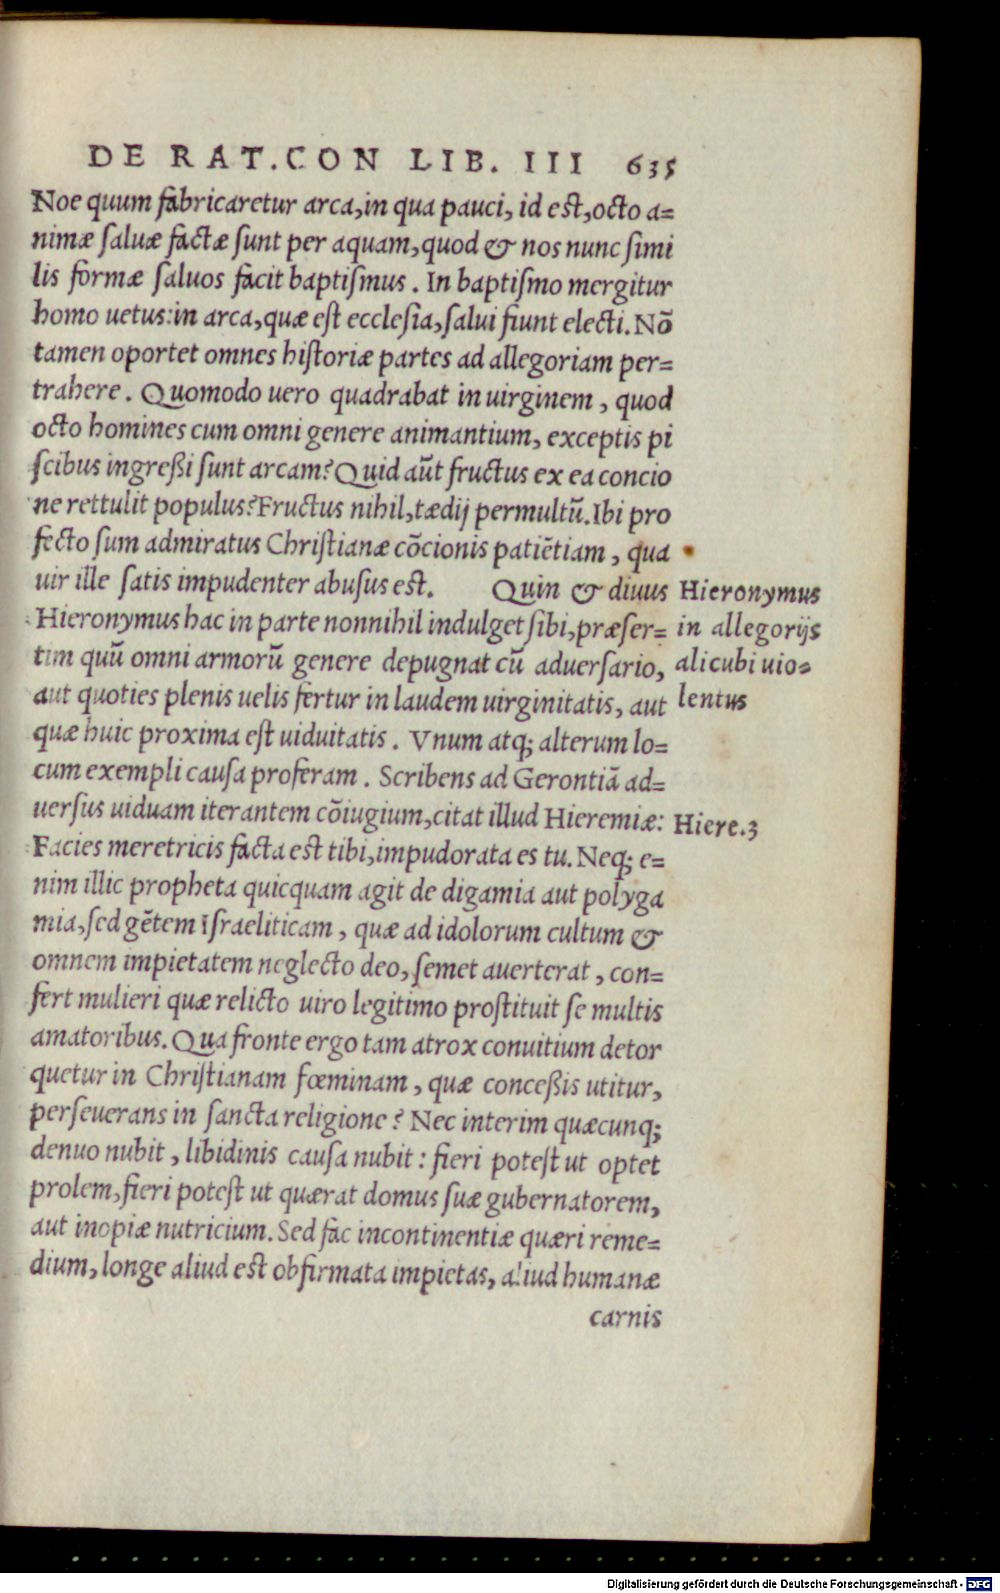 DE RAT.CON LIB. III 635
Noe quum fabricaretur arca,in qua pauci, id est,octo a=
nimæ saluæ factæ sunt per aquam,quod & nos nunc simi
lis formæ saluos facit baptismus . In baptismo mergitur
homo uetus:in arca,quæ est ecclesia,salui fiunt electi.Nõ
tamen oportet omnes historiæ partes ad allegoriam per=
trahere . Quomodo uero quadrabat in uirginem , quod
octo homines cum omni genere animantium, exceptis pi
scibus ingreßi sunt arcam? Quid aũt fructus ex ea concio
ne rettulit populus? Fructus nihil,tædij permultũ.Ibi pro
fecto sum admiratus Christianæ cõcionis patiẽtiam , qua
uir ille satis impudenter abusus est. Quin & diuus
Hieronymus hac in parte nonnihil indulget sibi,præser=
tim quũ omni armorũ genere depugnat cũ aduersario,
aut quoties plenis uelis fertur in laudem uirginitatis, aut
quæ huic proxima est uiduitatis . Vnum atq; alterum lo=
cum exempli causa proferam . Scribens ad Gerontiã ad=
uersus uiduam iterantem cõiugium,citat illud Hieremiæ:
Facies meretricis facta est tibi,impudorata es tu. Neq; e=
nim illic propheta quicquam agit de digamia aut polyga
mia,sed gẽtem Israeliticam , quæ ad idolorum cultum &
omnem impietatem neglecto deo, semet auerterat , con=
fert mulieri quæ relicto uiro legitimo prostituit se multis
amatoribus. Qua fronte ergo tam atrox conuitium detor
quetur in Christianam fœminam , quæ conceßis utitur,
perseuerans in sancta religione? Nec interim quæcunq;
denuo nubit , libidinis causa nubit : fieri potest ut optet
prolem,fieri potest ut quærat domus suæ gubernatorem,
aut inopiæ nutricium. Sed fac incontinentiæ quæri reme=
dium, longe aliud est obfirmata impietas, aliud humanæ
carnis
Hieronymus
in allegorijs
alicubi uio=
lentus
Hiere.3
Digitalisierung gefördert durch die Deutsche Forschungsgemeinschaft - DFG